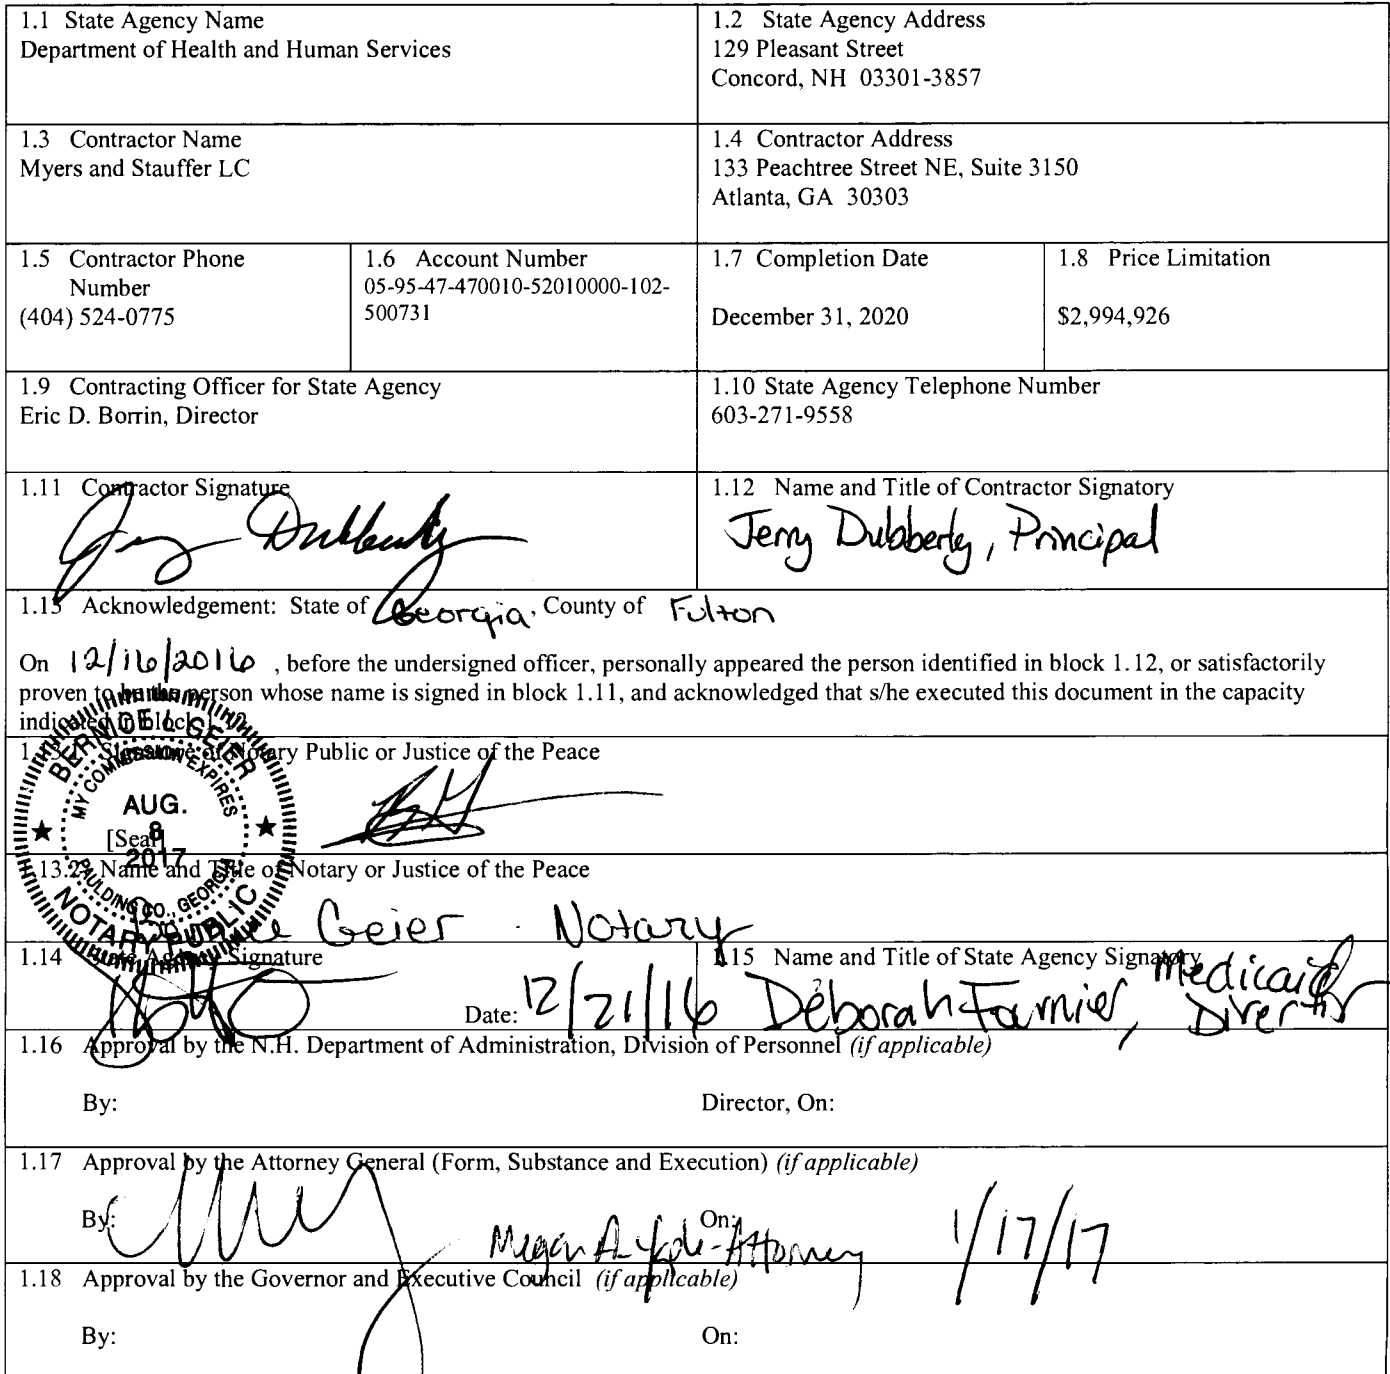 1.1 State Agency Name
Department of Health and Human Services
1.2 State Agency Address
129 Pleasant Street
Concord, NH 03301-3857
1.3 Contractor Name
Myers and Stauffer LC
1.4 Contractor Address
133 Peachtree Street NE, Suite 3150
Atlanta, GA 30303
1.5 Contractor Phone
Number
(404) 524-0775
1.6 Account Number
05-95-47-470010-52010000-102-
500731
1.7 Completion Date
December 31, 2020
1.8 Price Limitation
$2,994,926
1.9 Contracting Officer for State Agency
Eric D. Borrin, Director
1.10 State Agency Telephone Number
603-271-9558
1.11 Contractor Signature
Jerry Dubberly
1.12 Name and Title of Contractor Signatory
Jerry Dubberly, Principal
1.13 Acknowledgement: State of Georgia, County of Fulton
On 12/16/2016 , before the undersigned officer, personally appeared the person identified in block 1.12, or satisfactorily
proven to be the person whose name is signed in block 1.11, and acknowledged that s/he executed this document in the capacity
indicated in block 1.12.
1.13.1 Signature of Notary Public or Justice of the Peace
[Seal]
BERNICE L GEIER
MY COMMISSION EXPIRES
AUG.
8
2017
PAULDING CO., GEORGIA
NOTARY PUBLIC
1.13.2 Name and Title of Notary or Justice of the Peace
Bernice Geier - Notary
1.14 State Agency Signature
Date: 12/21/16
1.15 Name and Title of State Agency Signatory
Deborah Fournier, Medicaid
Director
1.16 Approval by the N.H. Department of Administration, Division of Personnel (if applicable)
By:
Director, On:
1.17 Approval by the Attorney General (Form, Substance and Execution) (if applicable)
By:
On:
Megan A. - Attorney 1/17/17
1.18 Approval by the Governor and Executive Council (if applicable)
By:
On: